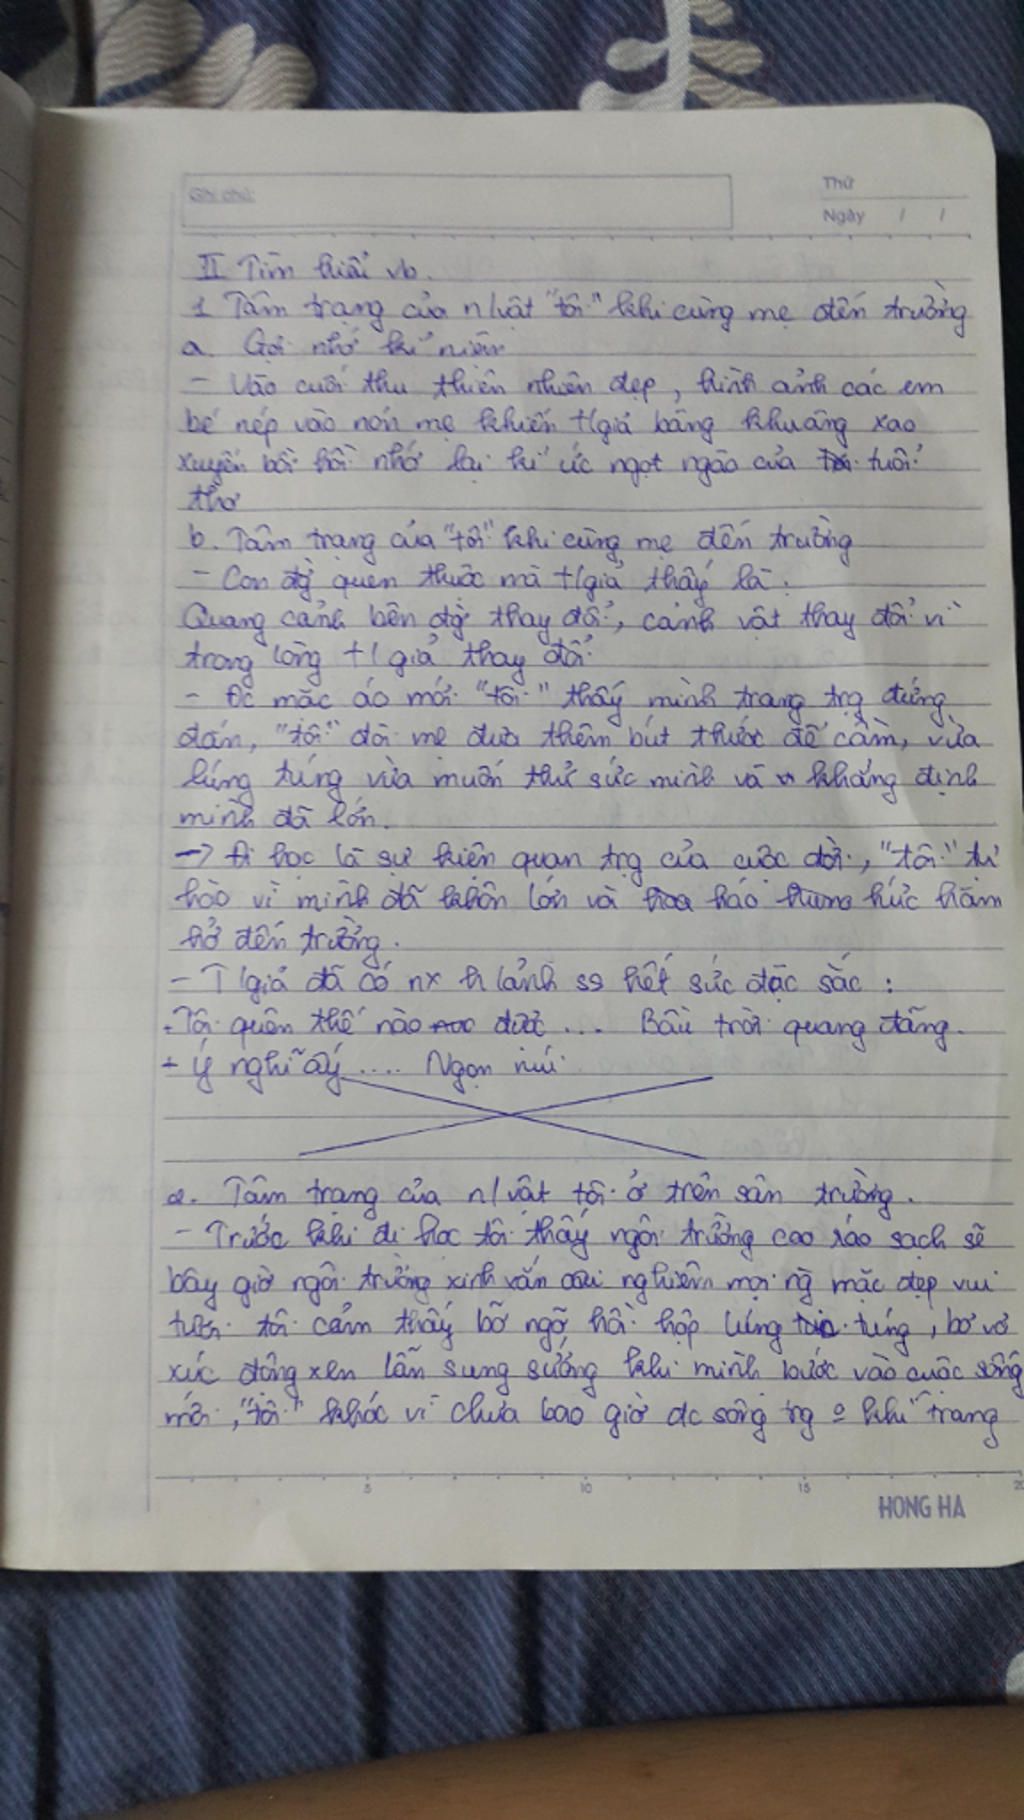 Ghi chú:
Thứ
Ngày / /
II Tìm hiểu vb.
1 Tâm trạng của n/vật "tôi" khi cùng mẹ đến trường
a. Gợi nhớ kỉ niệm
- Vào cuối thu thiên nhiên đẹp, hình ảnh các em
bé nép vào nón mẹ khiến t/giả bâng khuâng xao
xuyến bồi hồi nhớ lại kí ức ngọt ngào của tuổi
thơ
b. Tâm trạng của "tôi" khi cùng mẹ đến trường
- Con đg quen thuộc mà t/giả thấy lạ.
Quang cảnh bên đg thay đổi, cảnh vật thay đổi vì
trong lòng t/giả thay đổi
- Đc mặc áo mới "tôi" thấy mình trang trg đứng
đắn, "tôi" đòi mẹ đưa thêm bút thước để cầm, vừa
lúng túng vừa muốn thử sức mình và khẳng định
mình đã lớn.
-> Đi học là sự kiện quan trg của cuộc đời, "tôi" tự
hào vì mình đã khôn lớn và háo hức hăm
hở đến trường.
- T/giả đã có nx h/ảnh ss hết sức đặc sắc:
+ Tôi quên thế nào được ... Bầu trời quang đãng.
+ Ý nghĩ ấy .... Ngọn núi
2. Tâm trạng của n/vật tôi ở trên sân trường.
- Trước khi đi học tôi thấy ngôi trường cao ráo sạch sẽ
bây giờ ngôi trường xinh xắn oai nghiêm mọi ng mặc đẹp vui
tươi tôi cảm thấy bỡ ngỡ hồi hộp lúng túng, bơ vơ
xúc động xen lẫn sung sướng khi mình bước vào cuộc sống
mới, "tôi" khóc vì chưa bao giờ đc sống trg khí trang
5 10 15 20
HONG HA